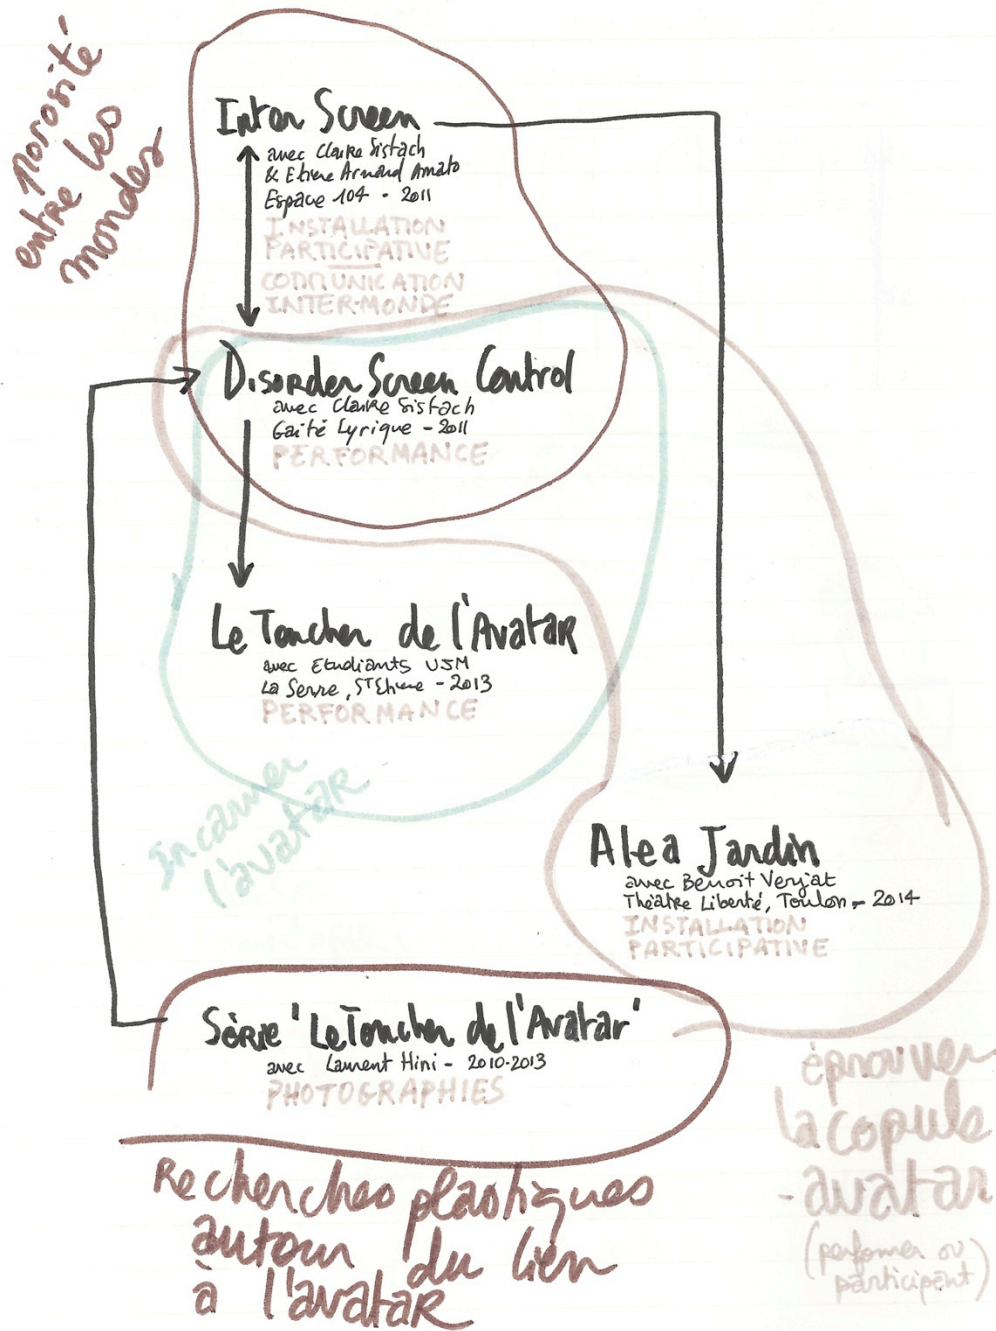 porosité
entre les
mondes
Inter Screen
avec Claire Sistach
& Etiene Armand Amato
Espace 104 - 2011
INSTALLATION
PARTICIPATIVE
COMMUNICATION
INTER-MONDE
Disorder Screen Control
avec Claire Sistach
Gaité Lyrique - 2011
PERFORMANCE
Le Toucher de l'Avatar
avec Etudiants UJM
La Serre, St Etiene - 2013
PERFORMANCE
Incarner
l'avatar
Alea Jardin
avec Benoit Verjat
Théâtre Liberté, Toulon - 2014
INSTALLATION
PARTICIPATIVE
Série 'Le Toucher de l'Avatar'
avec Laurent Hini - 2010-2013
PHOTOGRAPHIES
éprouver
la copule
-avatar
(performer ou
participant)
Recherches plastiques
autour du lien
à l'avatar